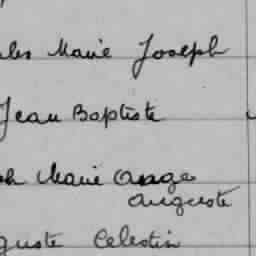 les Marie Joseph
Jean Baptiste
ph Marie Ange
Auguste
guste Celestin